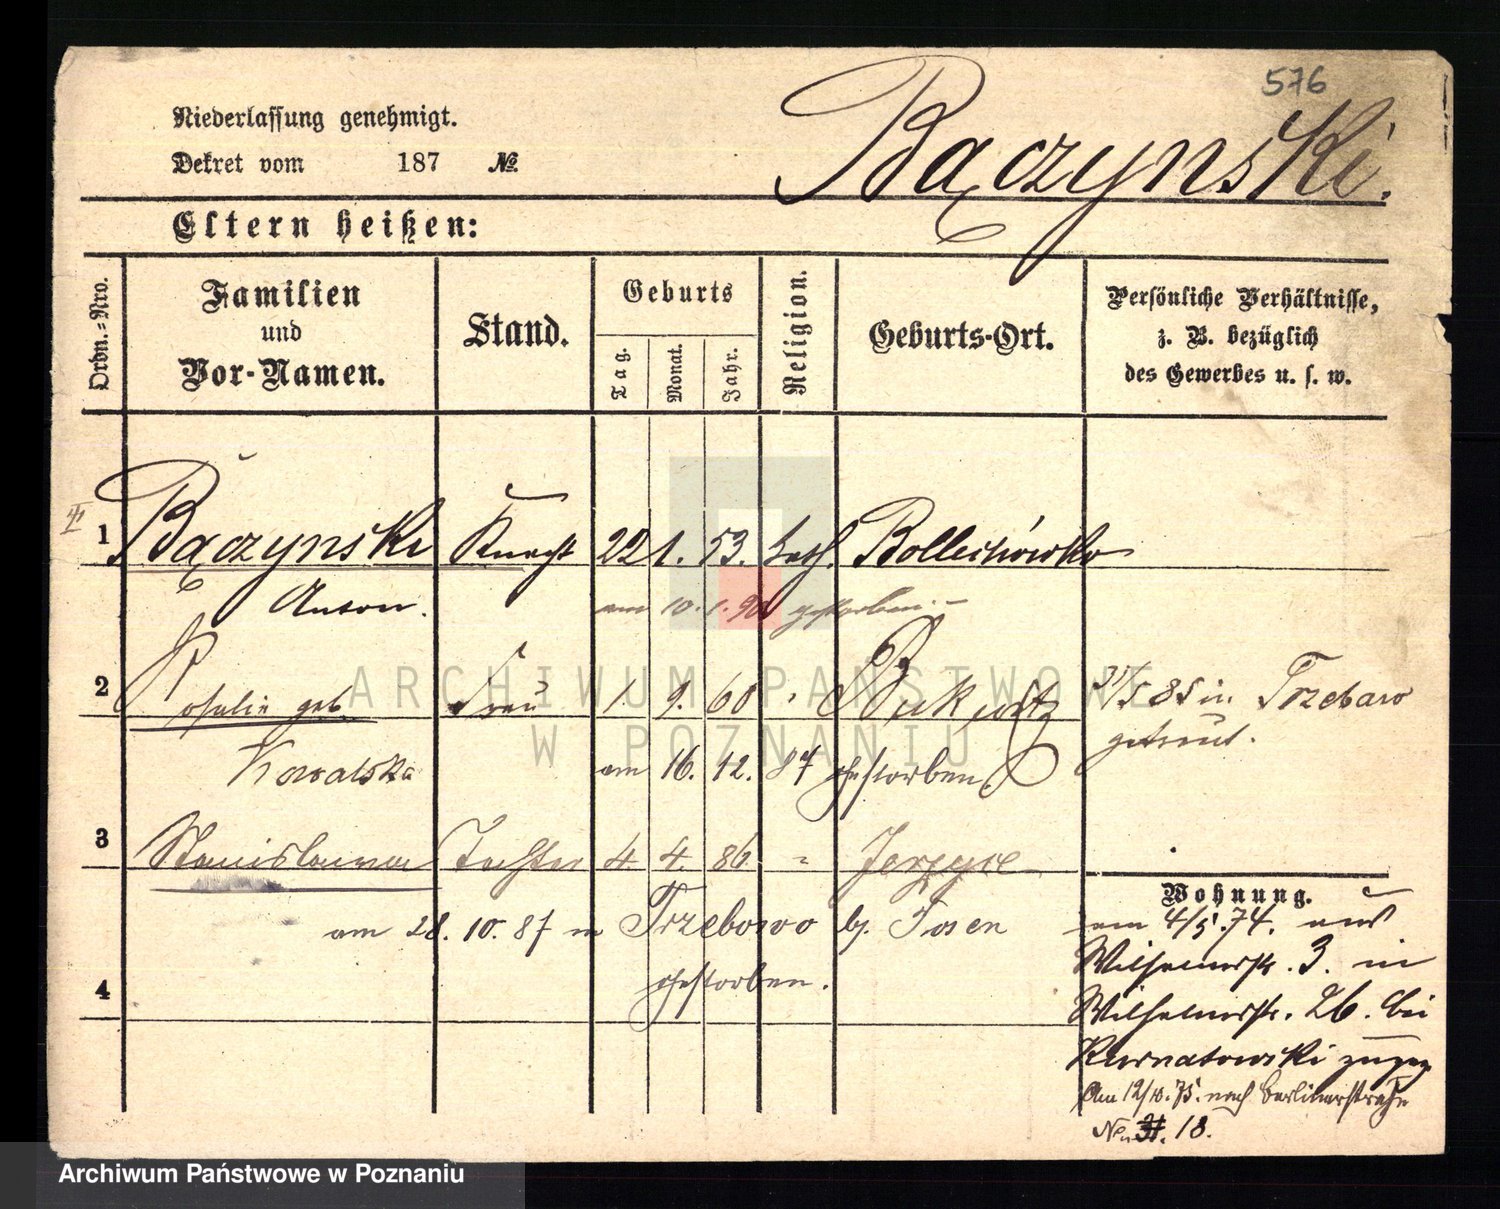 576
Niederlassung genehmigt.
Dekret vom 187 №
Bączynski.
Eltern heißen:
Ordn.-Nro.
Familien und Vor-Namen.
Stand.
Geburts
Tag. Monat. Jahr.
Religion.
Geburts-Ort.
Persönliche Verhältnisse, z. B. bezüglich des Gewerbes u. s. w.
1 Bączynski Knecht 22 1. 53. kath. Bollechówko
Anton. am 10. 1. gestorben.
2 Rosalie geb. Frau 1. 9. 60 " in Trzebaw
Kowalska am 16. 12. 87 gestorben. getraut.
3 Stanislawa Tochter 4. 4. 86. "
am 28. 10. 87 in Trzebowo b. Posen
gestorben.
4
Wohnung.
am 4/5. 74. aus
Wilhelmstr. 3. in
Wilhelmstr. 26. bei
Kurnatowski zugez.
Am 12/10. 75. nach Berlinerstraße
No. 18.
ARCHIWUM PAŃSTWOWE
W POZNANIU
Archiwum Państwowe w Poznaniu